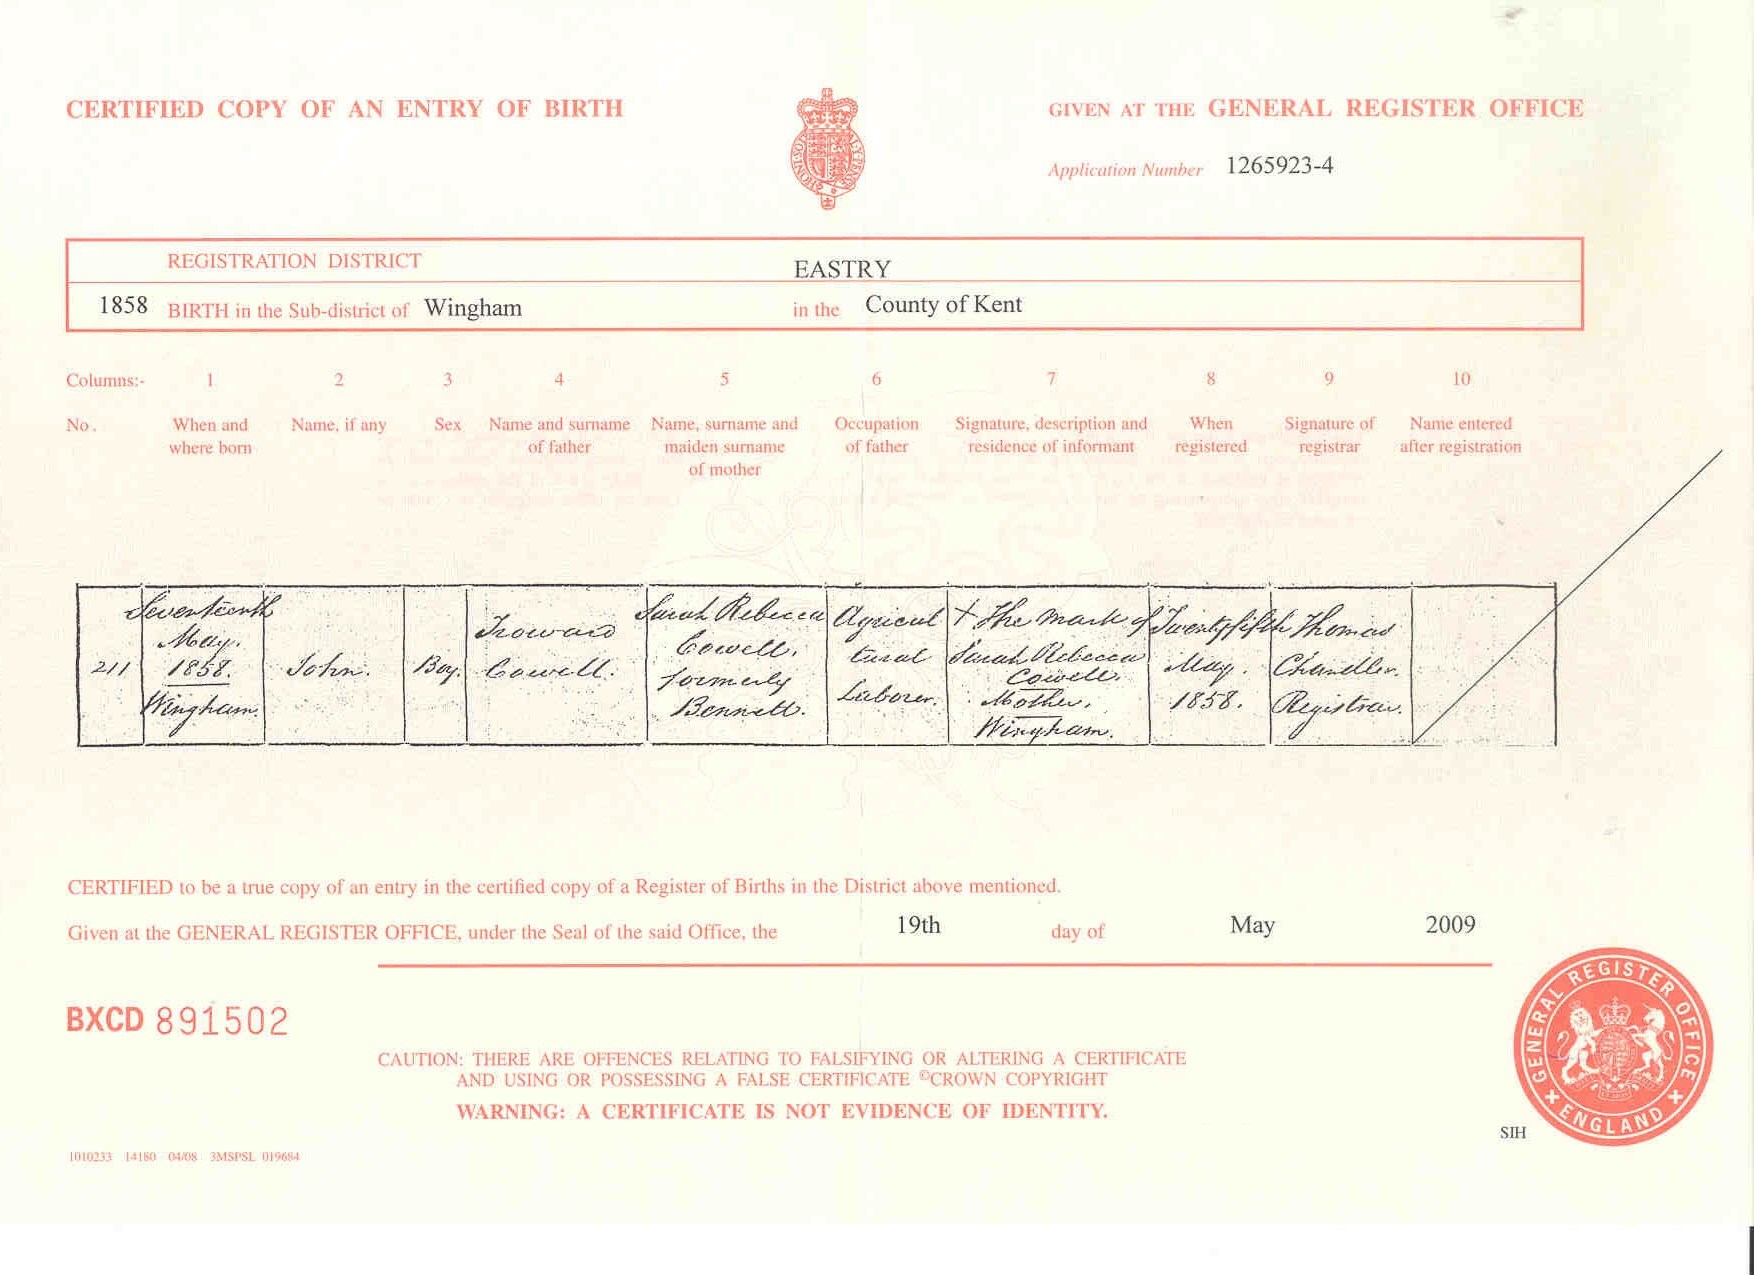 CERTIFIED COPY OF AN ENTRY OF BIRTH
GIVEN AT THE GENERAL REGISTER OFFICE
Application Number 1265923-4
REGISTRATION DISTRICT EASTRY
1858 BIRTH in the Sub-district of Wingham in the County of Kent
Columns:- 1 2 3 4 5 6 7 8 9 10
No. When and where born
Name, if any
Sex
Name and surname of father
Name, surname and maiden surname of mother
Occupation of father
Signature, description and residence of informant
When registered
Signature of registrar
Name entered after registration
211
Seventeenth
May.
1858.
Wingham.
John.
Boy.
Cowell.
Sarah Rebecca
Cowell.
formerly
Bennett.
Agricul
tural
Laborer.
X The mark of
Sarah Rebecca
Cowell.
Mother.
Wingham.
Twentyfifth
May.
1858.
Thomas
Chandler.
Registrar.
CERTIFIED to be a true copy of an entry in the certified copy of a Register of Births in the District above mentioned.
Given at the GENERAL REGISTER OFFICE, under the Seal of the said Office, the 19th day of May 2009
BXCD 891502
CAUTION: THERE ARE OFFENCES RELATING TO FALSIFYING OR ALTERING A CERTIFICATE
AND USING OR POSSESSING A FALSE CERTIFICATE ©CROWN COPYRIGHT
WARNING: A CERTIFICATE IS NOT EVIDENCE OF IDENTITY.
GENERAL REGISTER OFFICE
ENGLAND
SIH
1010233 14180 04/08 3MSPSL 019684